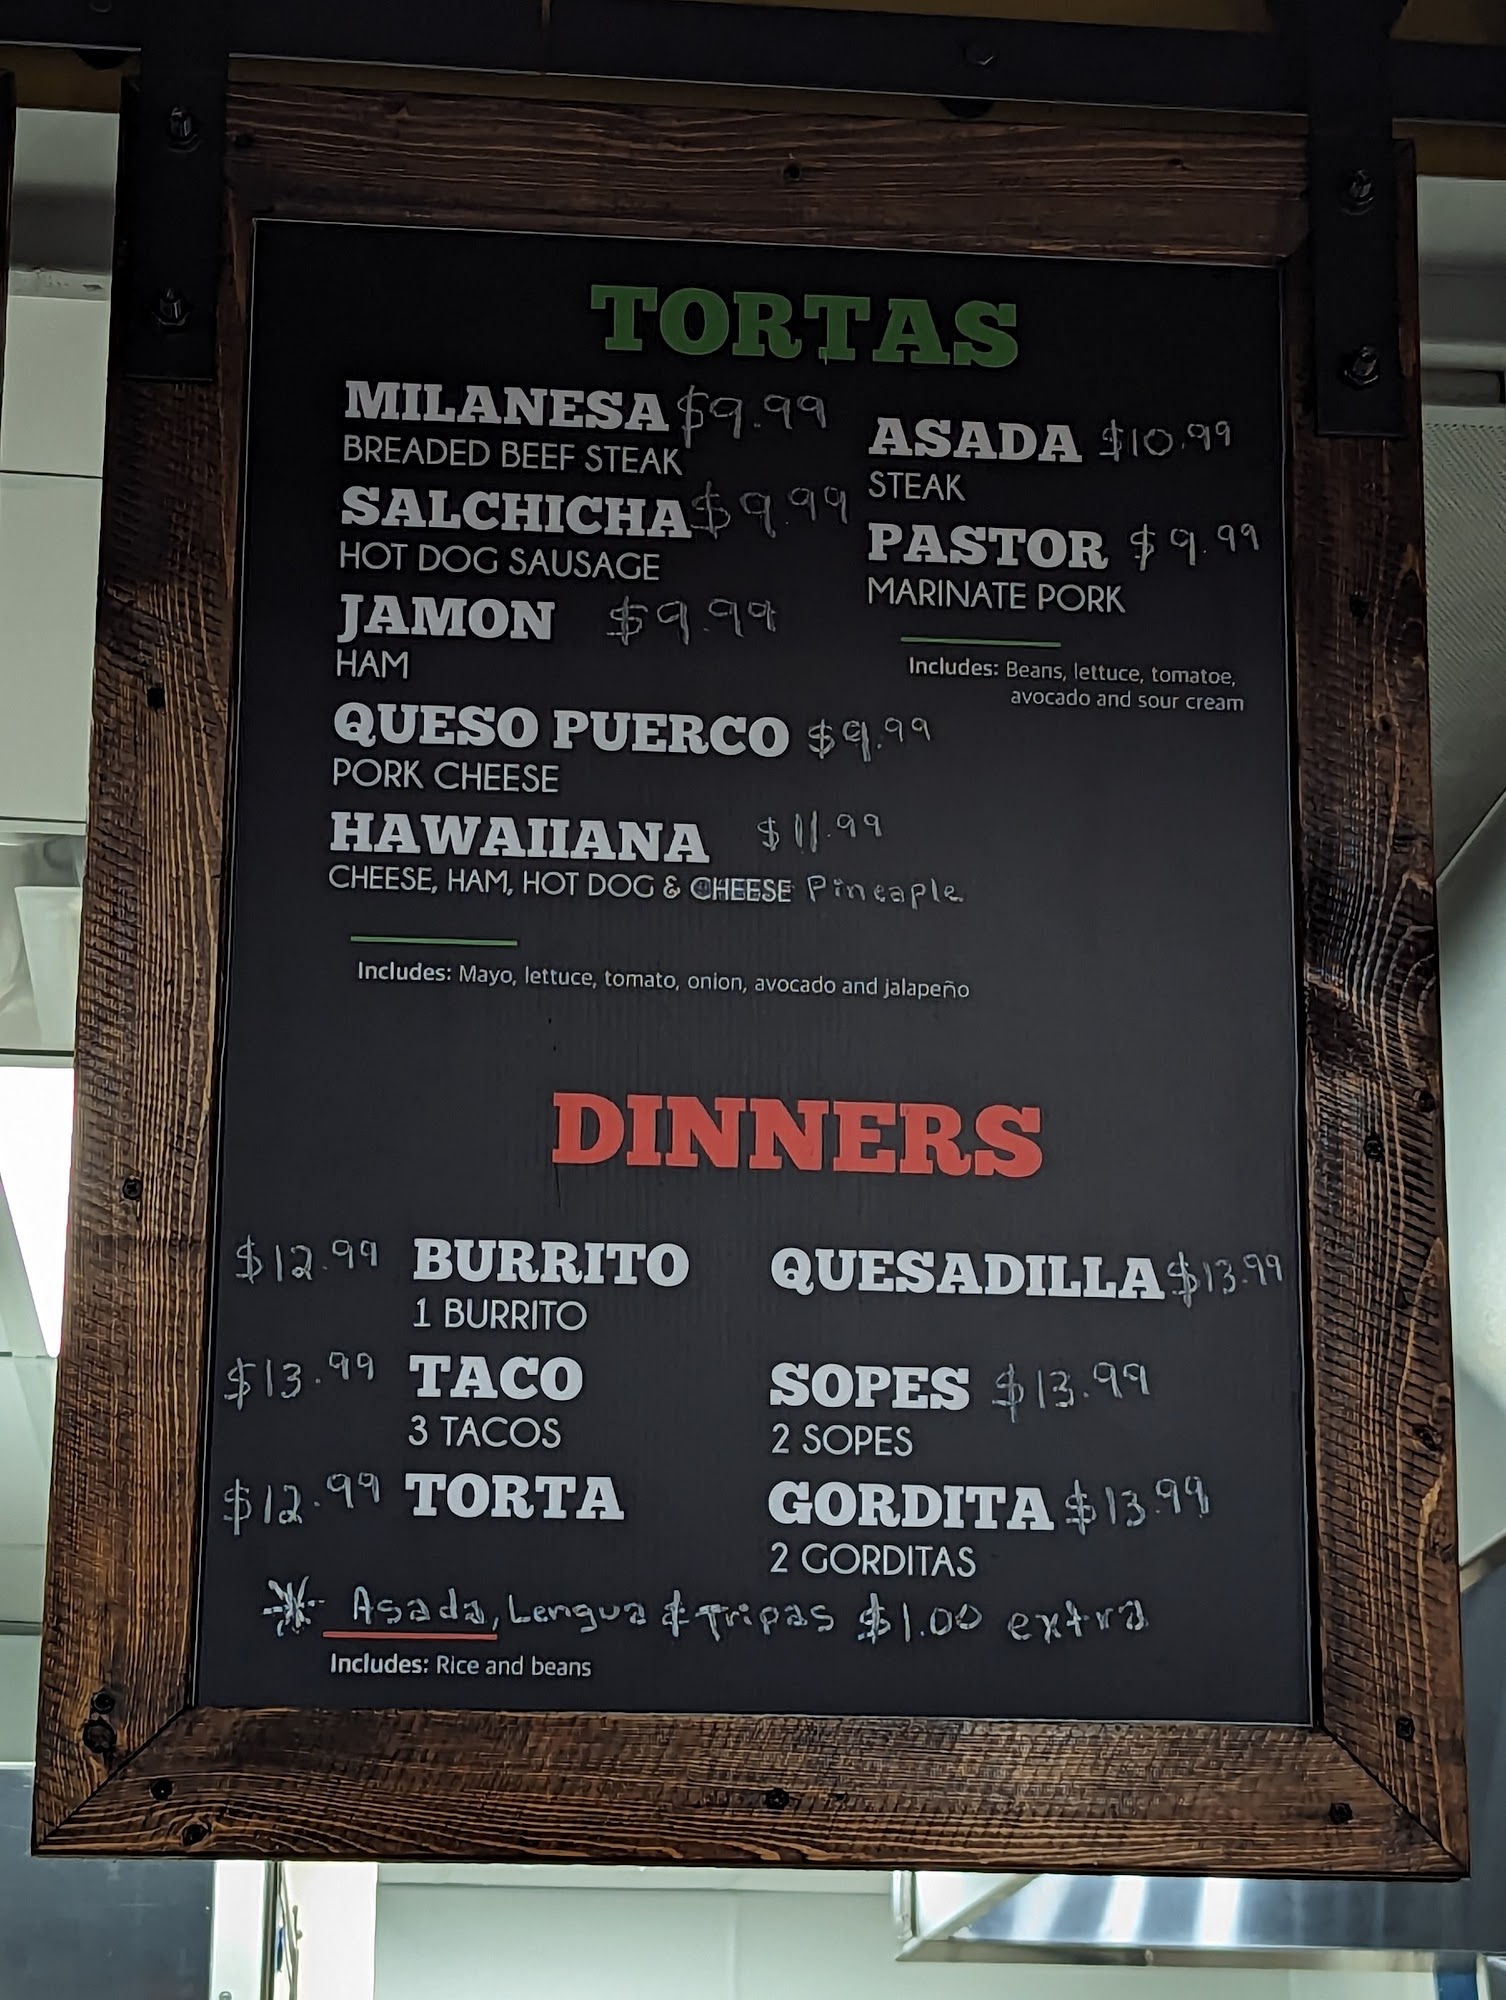 TORTAS
MILANESA $9.99
BREADED BEEF STEAK
SALCHICHA $9.99
HOT DOG SAUSAGE
JAMON $9.99
HAM
QUESO PUERCO $9.99
PORK CHEESE
HAWAIIANA $11.99
CHEESE, HAM, HOT DOG & CHEESE Pineaple
Includes: Mayo, lettuce, tomato, onion, avocado and jalapeño
ASADA $10.99
STEAK
PASTOR $9.99
MARINATE PORK
Includes: Beans, lettuce, tomatoe,
avocado and sour cream
DINNERS
$12.99 BURRITO
1 BURRITO
$13.99 TACO
3 TACOS
$12.99 TORTA
QUESADILLA $13.99
SOPES $13.99
2 SOPES
GORDITA $13.99
2 GORDITAS
Asada, Lengua & Tripas $1.00 extra
Includes: Rice and beans